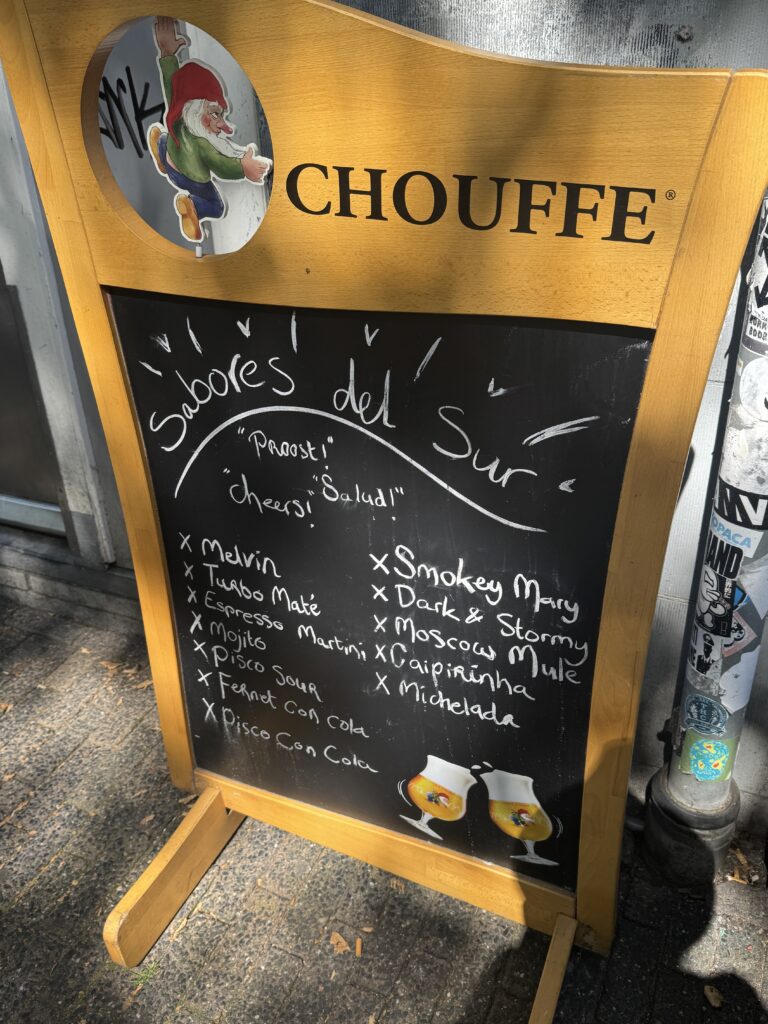 CHOUFFE®
Sabores del Sur
"Proost!"
"Salud!"
"cheers!"
x Melvin
x Turbo Maté
x Espresso Martini
x Mojito
x Pisco Sour
x Fernet con cola
x Pisco Con Cola
x Smokey Mary
x Dark & Stormy
x Moscow Mule
x Caipirinha
x Michelada